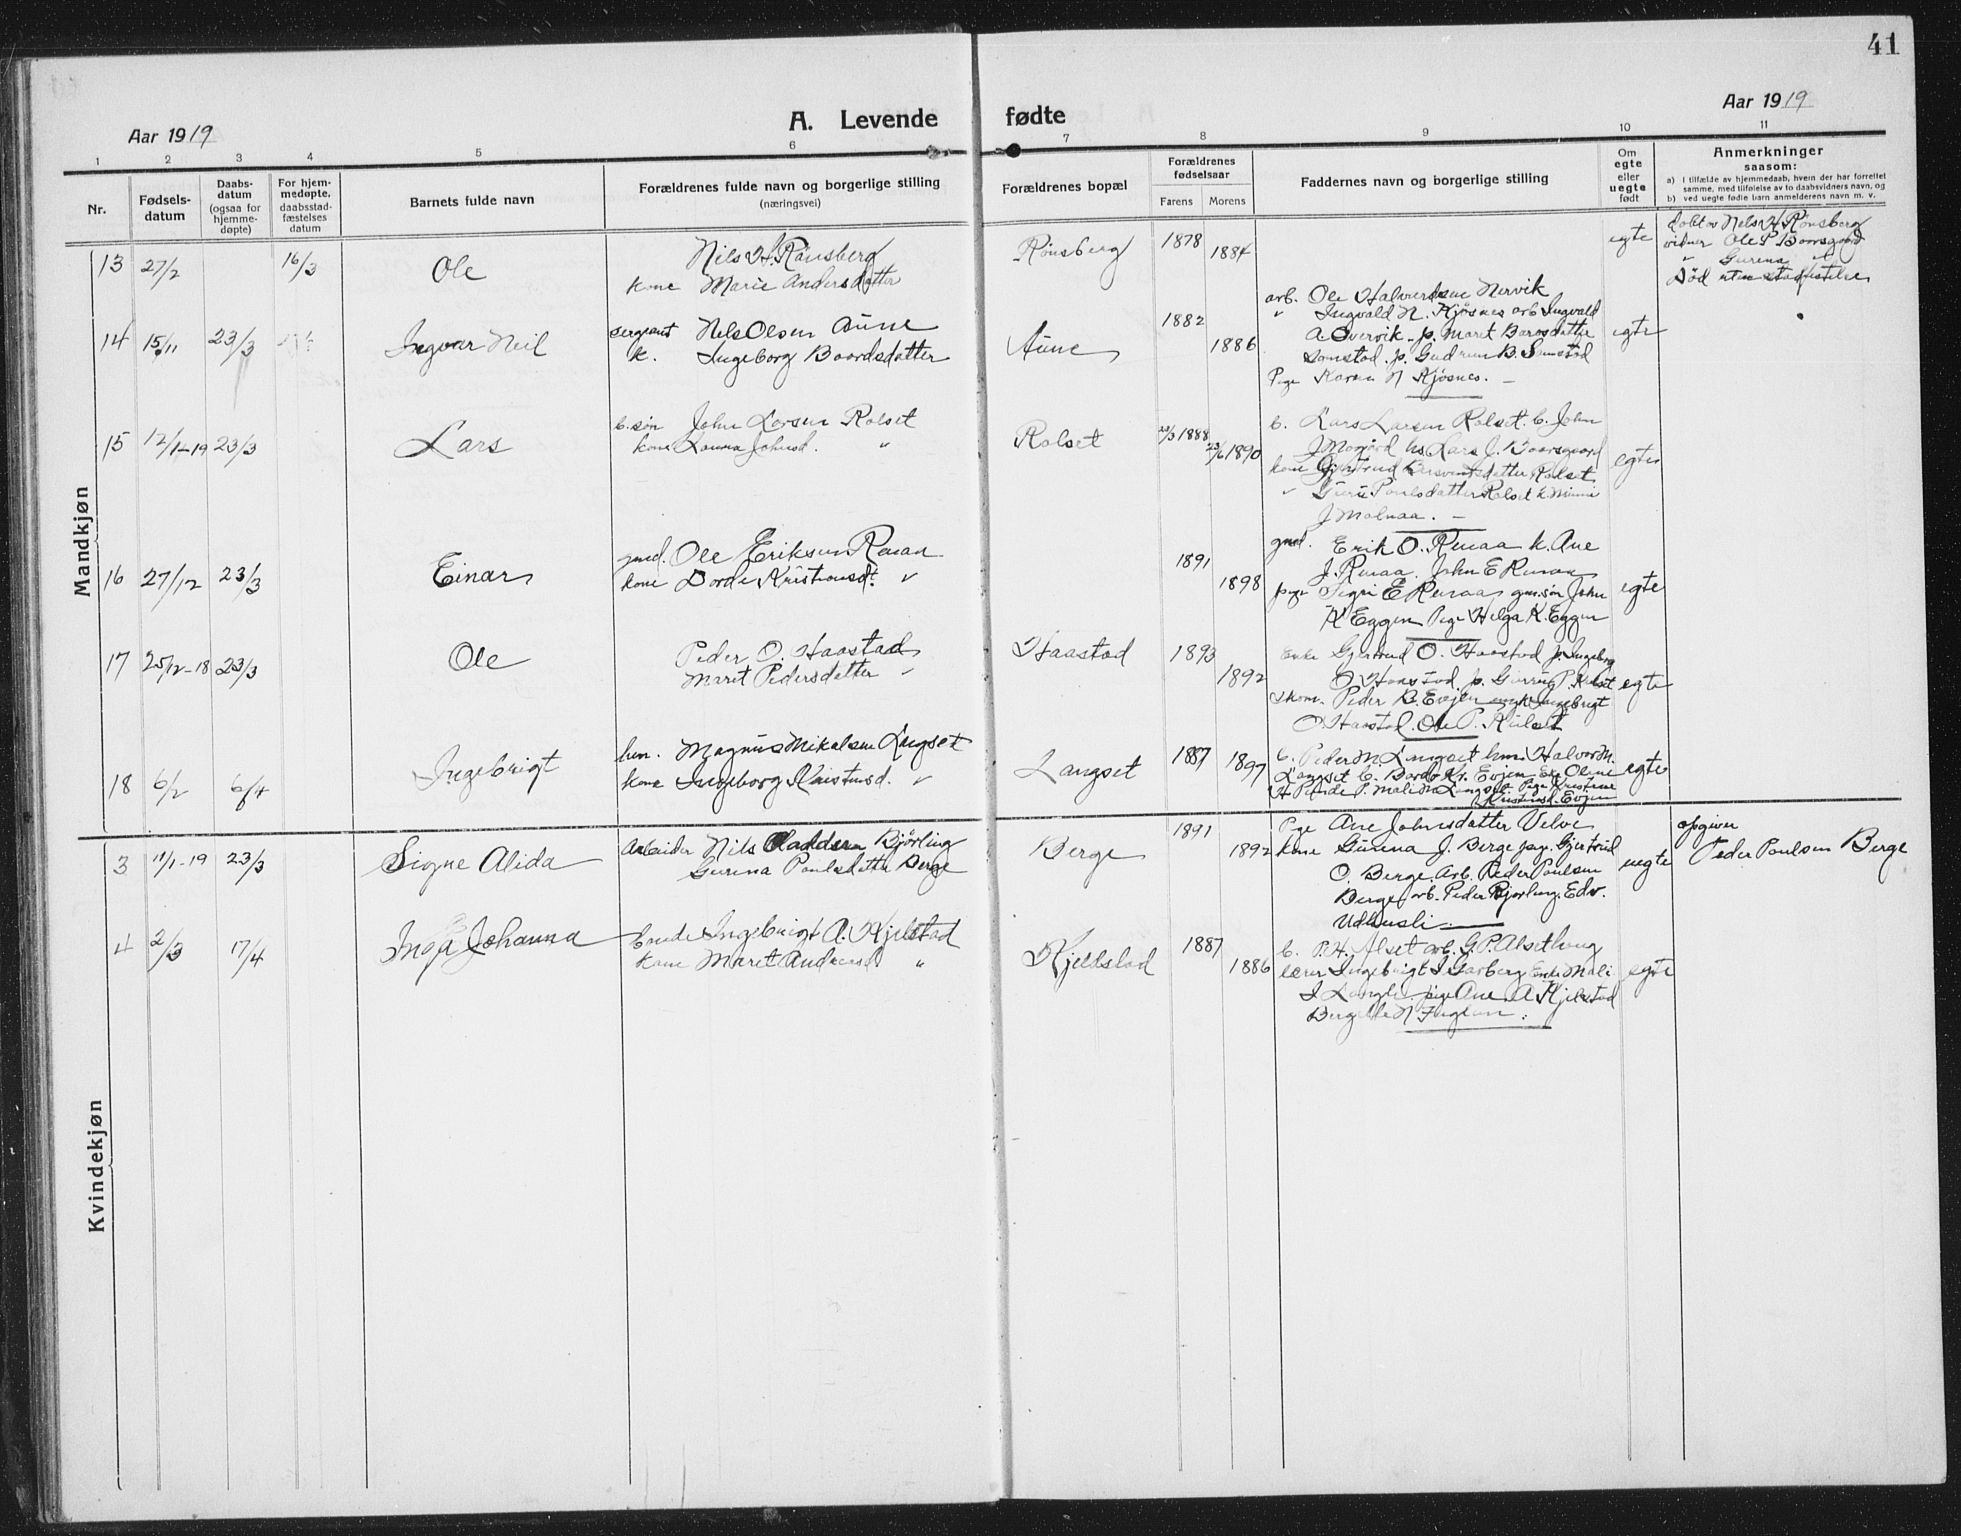 41
Aar 1919
A. Levende fødte
Aar 1919
1 2 3 4 5 6 7 8 9 10 11
Nr.
Fødsels-
datum
Daabs-
datum
(ogsaa for
hjemme-
døpte)
For hjem-
medøpte,
daabsstad-
fæstelses
datum
Barnets fulde navn
Forældrenes fulde navn og borgerlige stilling
(næringsvei)
Forældrenes bopæl
Forældrenes
fødselsaar
Farens Morens
Faddernes navn og borgerlige stilling
Om
egte
eller
uegte
født
Anmerkninger
saasom:
a) i tilfælde av hjemmedaab, hvem der har forrettet
samme, med tilføielse av to daabsvidners navn, og
b) ved uegte fødte barn anmelderens navn m. v.
Mandkjøn
13 27/2 16/3 Ole
Nils H. Rønsberg
kone Marie Andersdatter
Rønsberg 1878 1884 egte
Døbt av Nels H. Rønsberg
vidner Ole P Baarsgaard
" Gurena "
Død uten stadfestelse
14 15/11 23/3 Ingvar Neil
sergeant Nels Olsen Aune
k. Ingeborg Baardsdatter
Aune 1882 1886
arb. Ole Halvorsen Nervik
" Ingvald N. Kjøsnes arb Ingvald
A Overvik p. Maret Baarsdatter
Samstad. p. Gudrun B. Samstad
Pige Karen N Kjøsnes. —
egte
15 12/1-19 23/3 Lars
b.søn John Larsen Rolset
kone Launa Johnsd. "
Rolset 20/3 1888 23/6 1890
b. Lars Larsen Rolset. b. John
J Mogård hs Lars J. Baarsgaard
kone Gjertrud Rolset
" Guri Paulsdatter Rolset k.
J Malnaa. —
egte
16 27/12 23/3 Einar
gmd. Ole Eriksen Renaa
kone Dorde Kristiansdt. "
1891 1898
gmd. Erik O. Renaa k. Ane
J. Renaa. John E Renaa
pige E Renaa gm.søn John
K Eggen Pige Helga K. Eggen
egte
17 25/12-18 23/3 Ole
Peder O. Haastad
Marit Pedersdatter "
Haastad 1893 1892
Enke Gjertrud O. Haastad p. Ingeborg
O Haastad p. Gurina P.
skom. Peder B. Evjen Ingebrigt
O Haastad. Ole P.
egte
18 6/2 6/4 Ingebrigt
hm. Magnus Mikalsen Langset
kone Ingeborg Kristensd. "
Langset 1887 1897
b. Peder M Langset hm. Halvor M.
Langset b. Bardo Kr. Evjen Oline
H P. Mali M Langset Pige Kristine
Kristensd. Evjen
egte
Kvindekjøn
3 11/1-19 23/3 Signe Alida
Arbeider Nils Bjørling
Gurina Paulsdatter Berge
Berge 1891 1892
Pige Ane Johnsdatter Velve
kone Gurena J. Berge pige. Gjertrud
O. Berge. Arb. Peder Paulsen
Berge arb. Peder Bjørling. Edv.
Udhusli
uegte
opgiver
Peder Paulsen Berge
4 2/3 17/4 Inga Johanna
bonde Ingebrigt A. Kjelstad
kone Maret Andersd "
Kjeldstad 1887 1886
b. P. H. Alset arb. G P. Alsethaug
lærer Ingebrigt I Garberg Enke Mali
I pige Ane A Kjelstad
Berg
egte